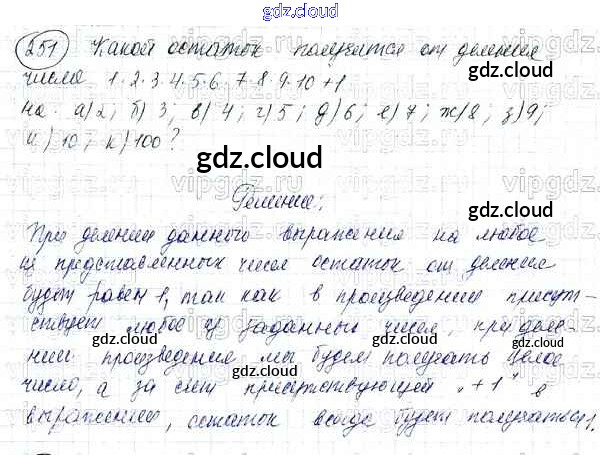 gdz.cloud
251 Какой остаток получится от деления
числа 1·2·3·4·5·6·7·8·9·10+1
на: а) 2; б) 3; в) 4; г) 5; д) 6; е) 7; ж) 8; з) 9;
и) 10; к) 100?
gdz.cloud
Решение:
gdz.cloud
При делении данного выражения на любое
из представленных чисел остаток от деления
будет равен 1, так как в произведении присут-
ствует любое из заданных чисел, при деле-
нии произведения мы будем получать целое
число, а за счет присутствующей "+1" в
выражении, остаток всегда будет получаться 1.